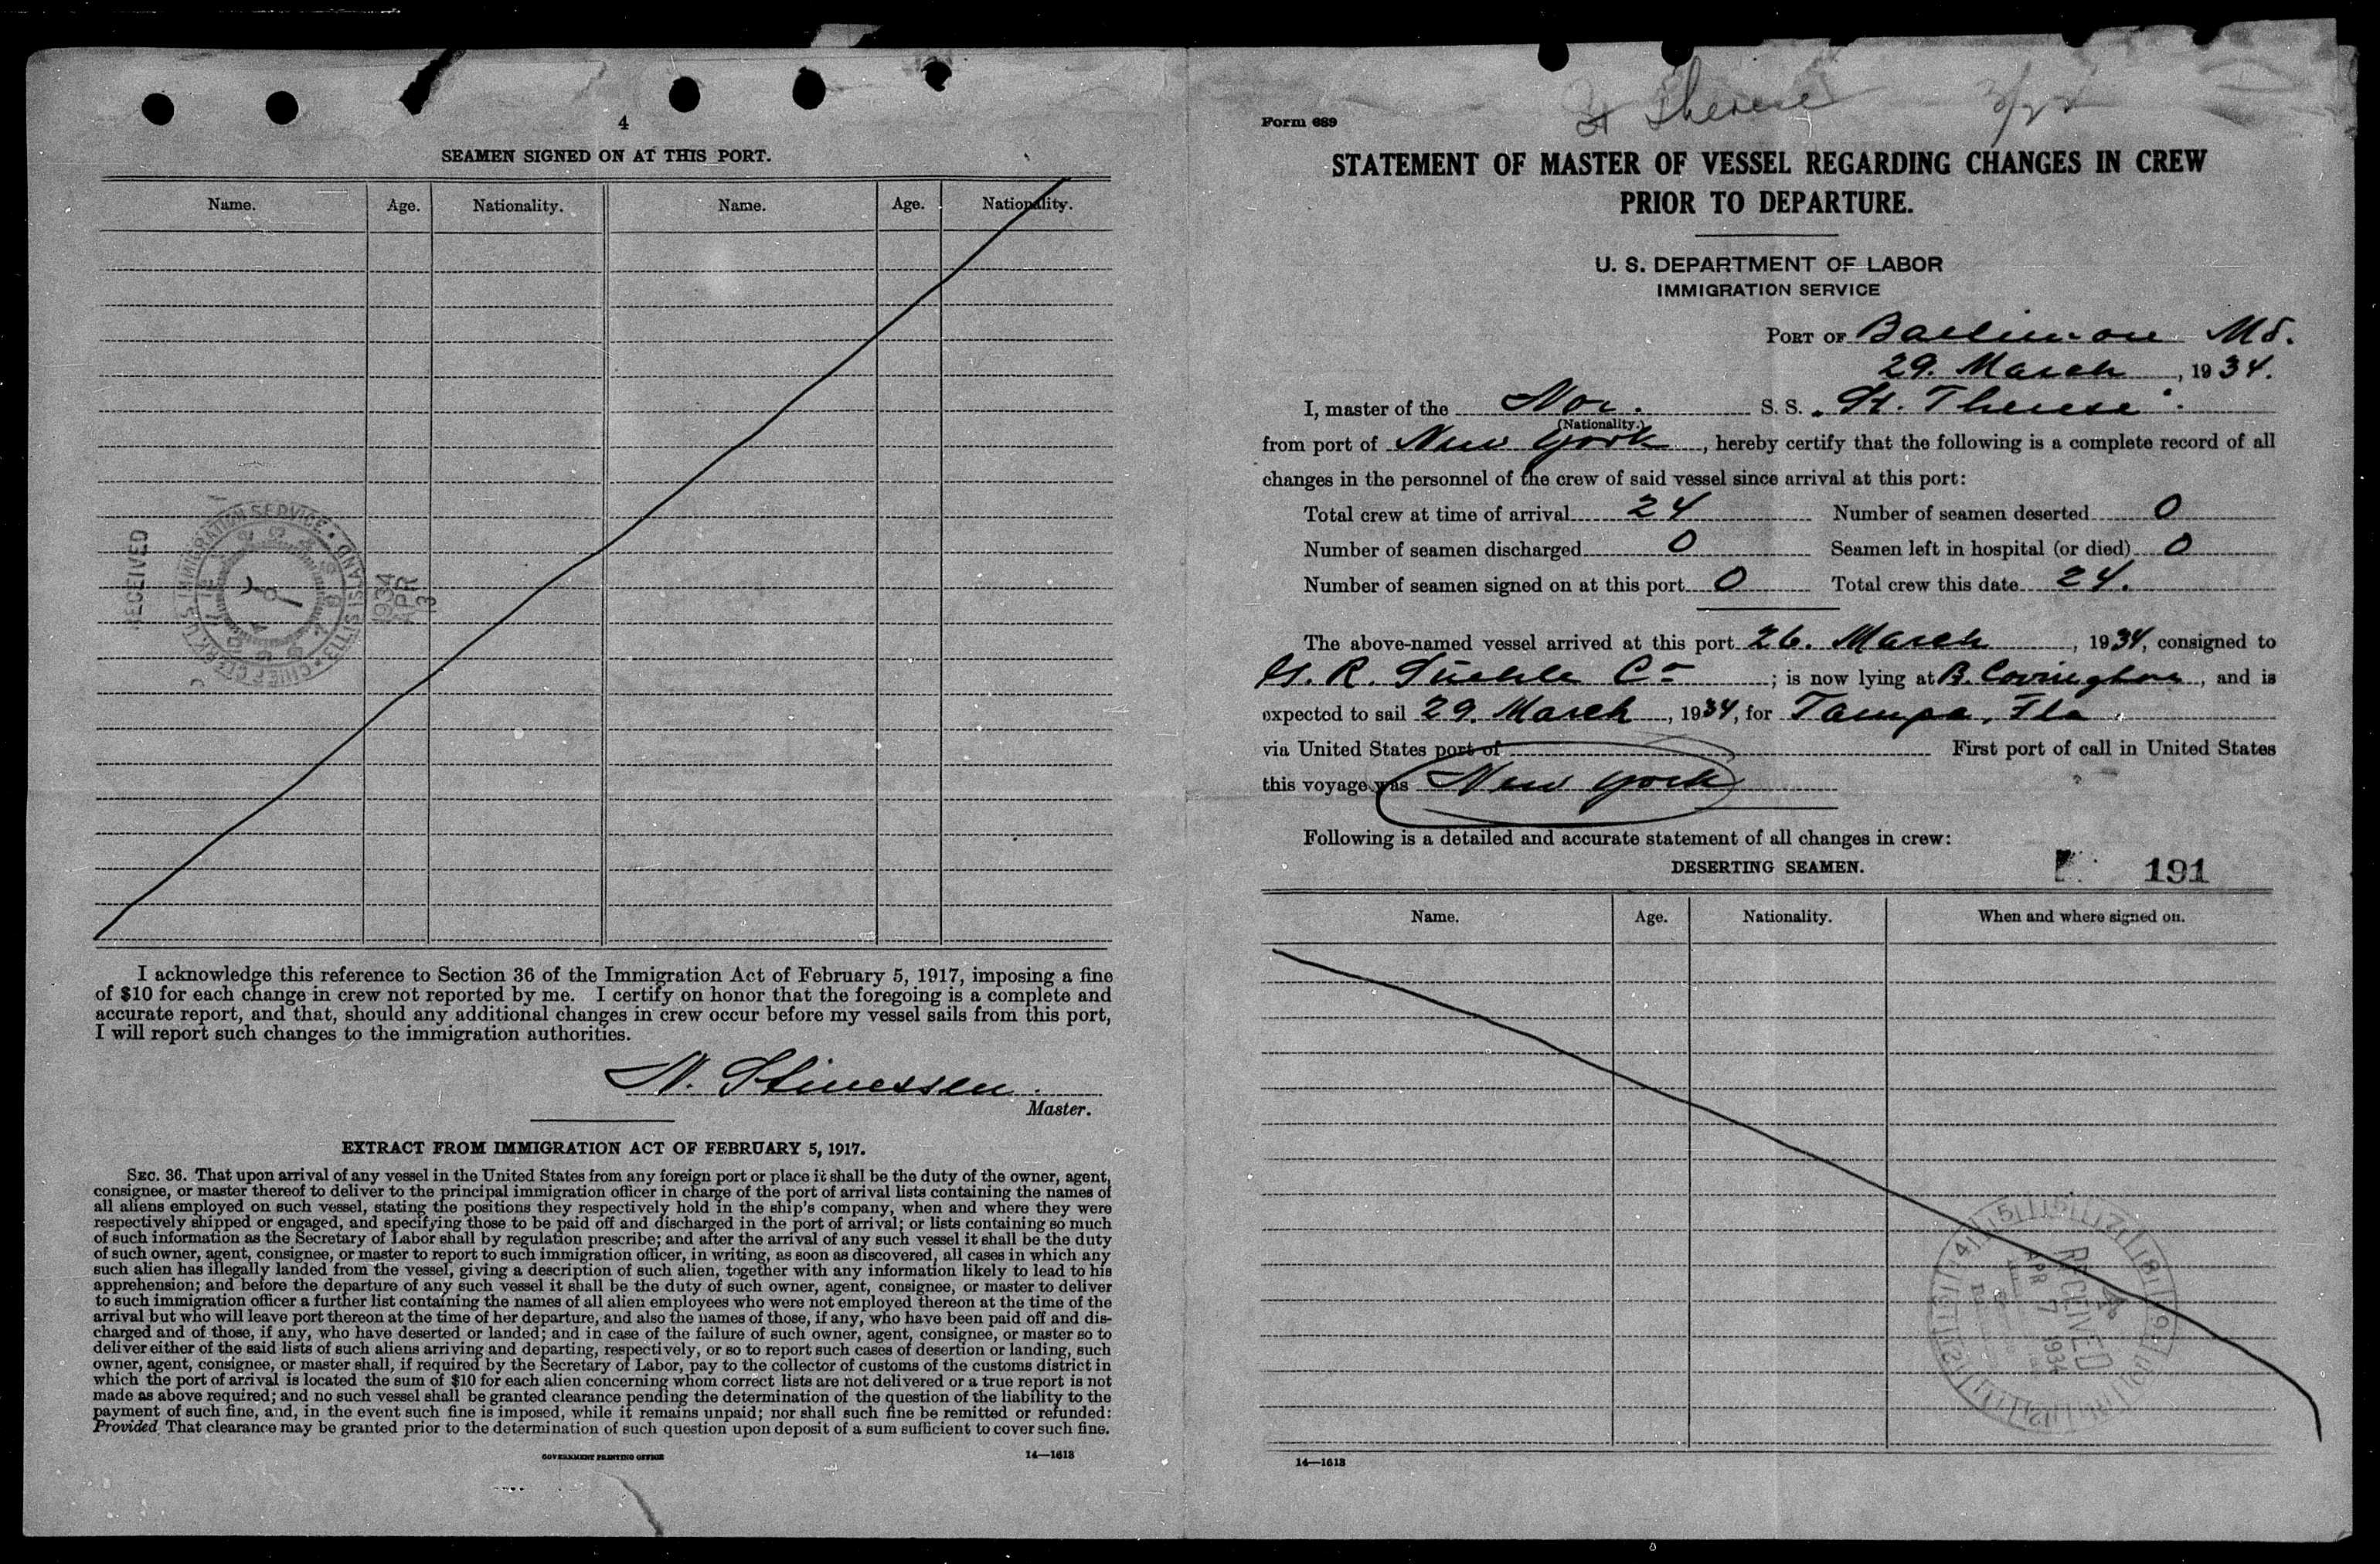 4
SEAMEN SIGNED ON AT THIS PORT.
Name. Age. Nationality. Name. Age. Nationality.
RECEIVED
U.S. IMMIGRATION SERVICE · ELLIS ISLAND · CHIEF CLERK
1934
APR
3
I acknowledge this reference to Section 36 of the Immigration Act of February 5, 1917, imposing a fine
of $10 for each change in crew not reported by me. I certify on honor that the foregoing is a complete and
accurate report, and that, should any additional changes in crew occur before my vessel sails from this port,
I will report such changes to the immigration authorities.
N. Stinessen.
Master.
EXTRACT FROM IMMIGRATION ACT OF FEBRUARY 5, 1917.
SEC. 36. That upon arrival of any vessel in the United States from any foreign port or place it shall be the duty of the owner, agent,
consignee, or master thereof to deliver to the principal immigration officer in charge of the port of arrival lists containing the names of
all aliens employed on such vessel, stating the positions they respectively hold in the ship's company, when and where they were
respectively shipped or engaged, and specifying those to be paid off and discharged in the port of arrival; or lists containing so much
of such information as the Secretary of Labor shall by regulation prescribe; and after the arrival of any such vessel it shall be the duty
of such owner, agent, consignee, or master to report to such immigration officer, in writing, as soon as discovered, all cases in which any
such alien has illegally landed from the vessel, giving a description of such alien, together with any information likely to lead to his
apprehension; and before the departure of any such vessel it shall be the duty of such owner, agent, consignee, or master to deliver
to such immigration officer a further list containing the names of all alien employees who were not employed thereon at the time of the
arrival but who will leave port thereon at the time of her departure, and also the names of those, if any, who have been paid off and dis-
charged and of those, if any, who have deserted or landed; and in case of the failure of such owner, agent, consignee, or master so to
deliver either of the said lists of such aliens arriving and departing, respectively, or so to report such cases of desertion or landing, such
owner, agent, consignee, or master shall, if required by the Secretary of Labor, pay to the collector of customs of the customs district in
which the port of arrival is located the sum of $10 for each alien concerning whom correct lists are not delivered or a true report is not
made as above required; and no such vessel shall be granted clearance pending the determination of the question of the liability to the
payment of such fine, and, in the event such fine is imposed, while it remains unpaid; nor shall such fine be remitted or refunded:
Provided, That clearance may be granted prior to the determination of such question upon deposit of a sum sufficient to cover such fine.
GOVERNMENT PRINTING OFFICE 14—1613
St Therese 3/22
Form 689
STATEMENT OF MASTER OF VESSEL REGARDING CHANGES IN CREW
PRIOR TO DEPARTURE.
U. S. DEPARTMENT OF LABOR
IMMIGRATION SERVICE
PORT OF Baltimore Md.
29. March, 1934.
I, master of the Nor. S. S. "St. Therese".
(Nationality.)
from port of New York, hereby certify that the following is a complete record of all
changes in the personnel of the crew of said vessel since arrival at this port:
Total crew at time of arrival 24 Number of seamen deserted 0
Number of seamen discharged 0 Seamen left in hospital (or died) 0
Number of seamen signed on at this port 0 Total crew this date 24.
The above-named vessel arrived at this port 26. March, 1934, consigned to
R. Co; is now lying at B. Covington, and is
expected to sail 29. March, 1934, for Tampa, Fla.
via United States port of First port of call in United States
this voyage was New York
Following is a detailed and accurate statement of all changes in crew:
DESERTING SEAMEN.
191
Name. Age. Nationality. When and where signed on.
RECEIVED
APR 7 1934
14—1613